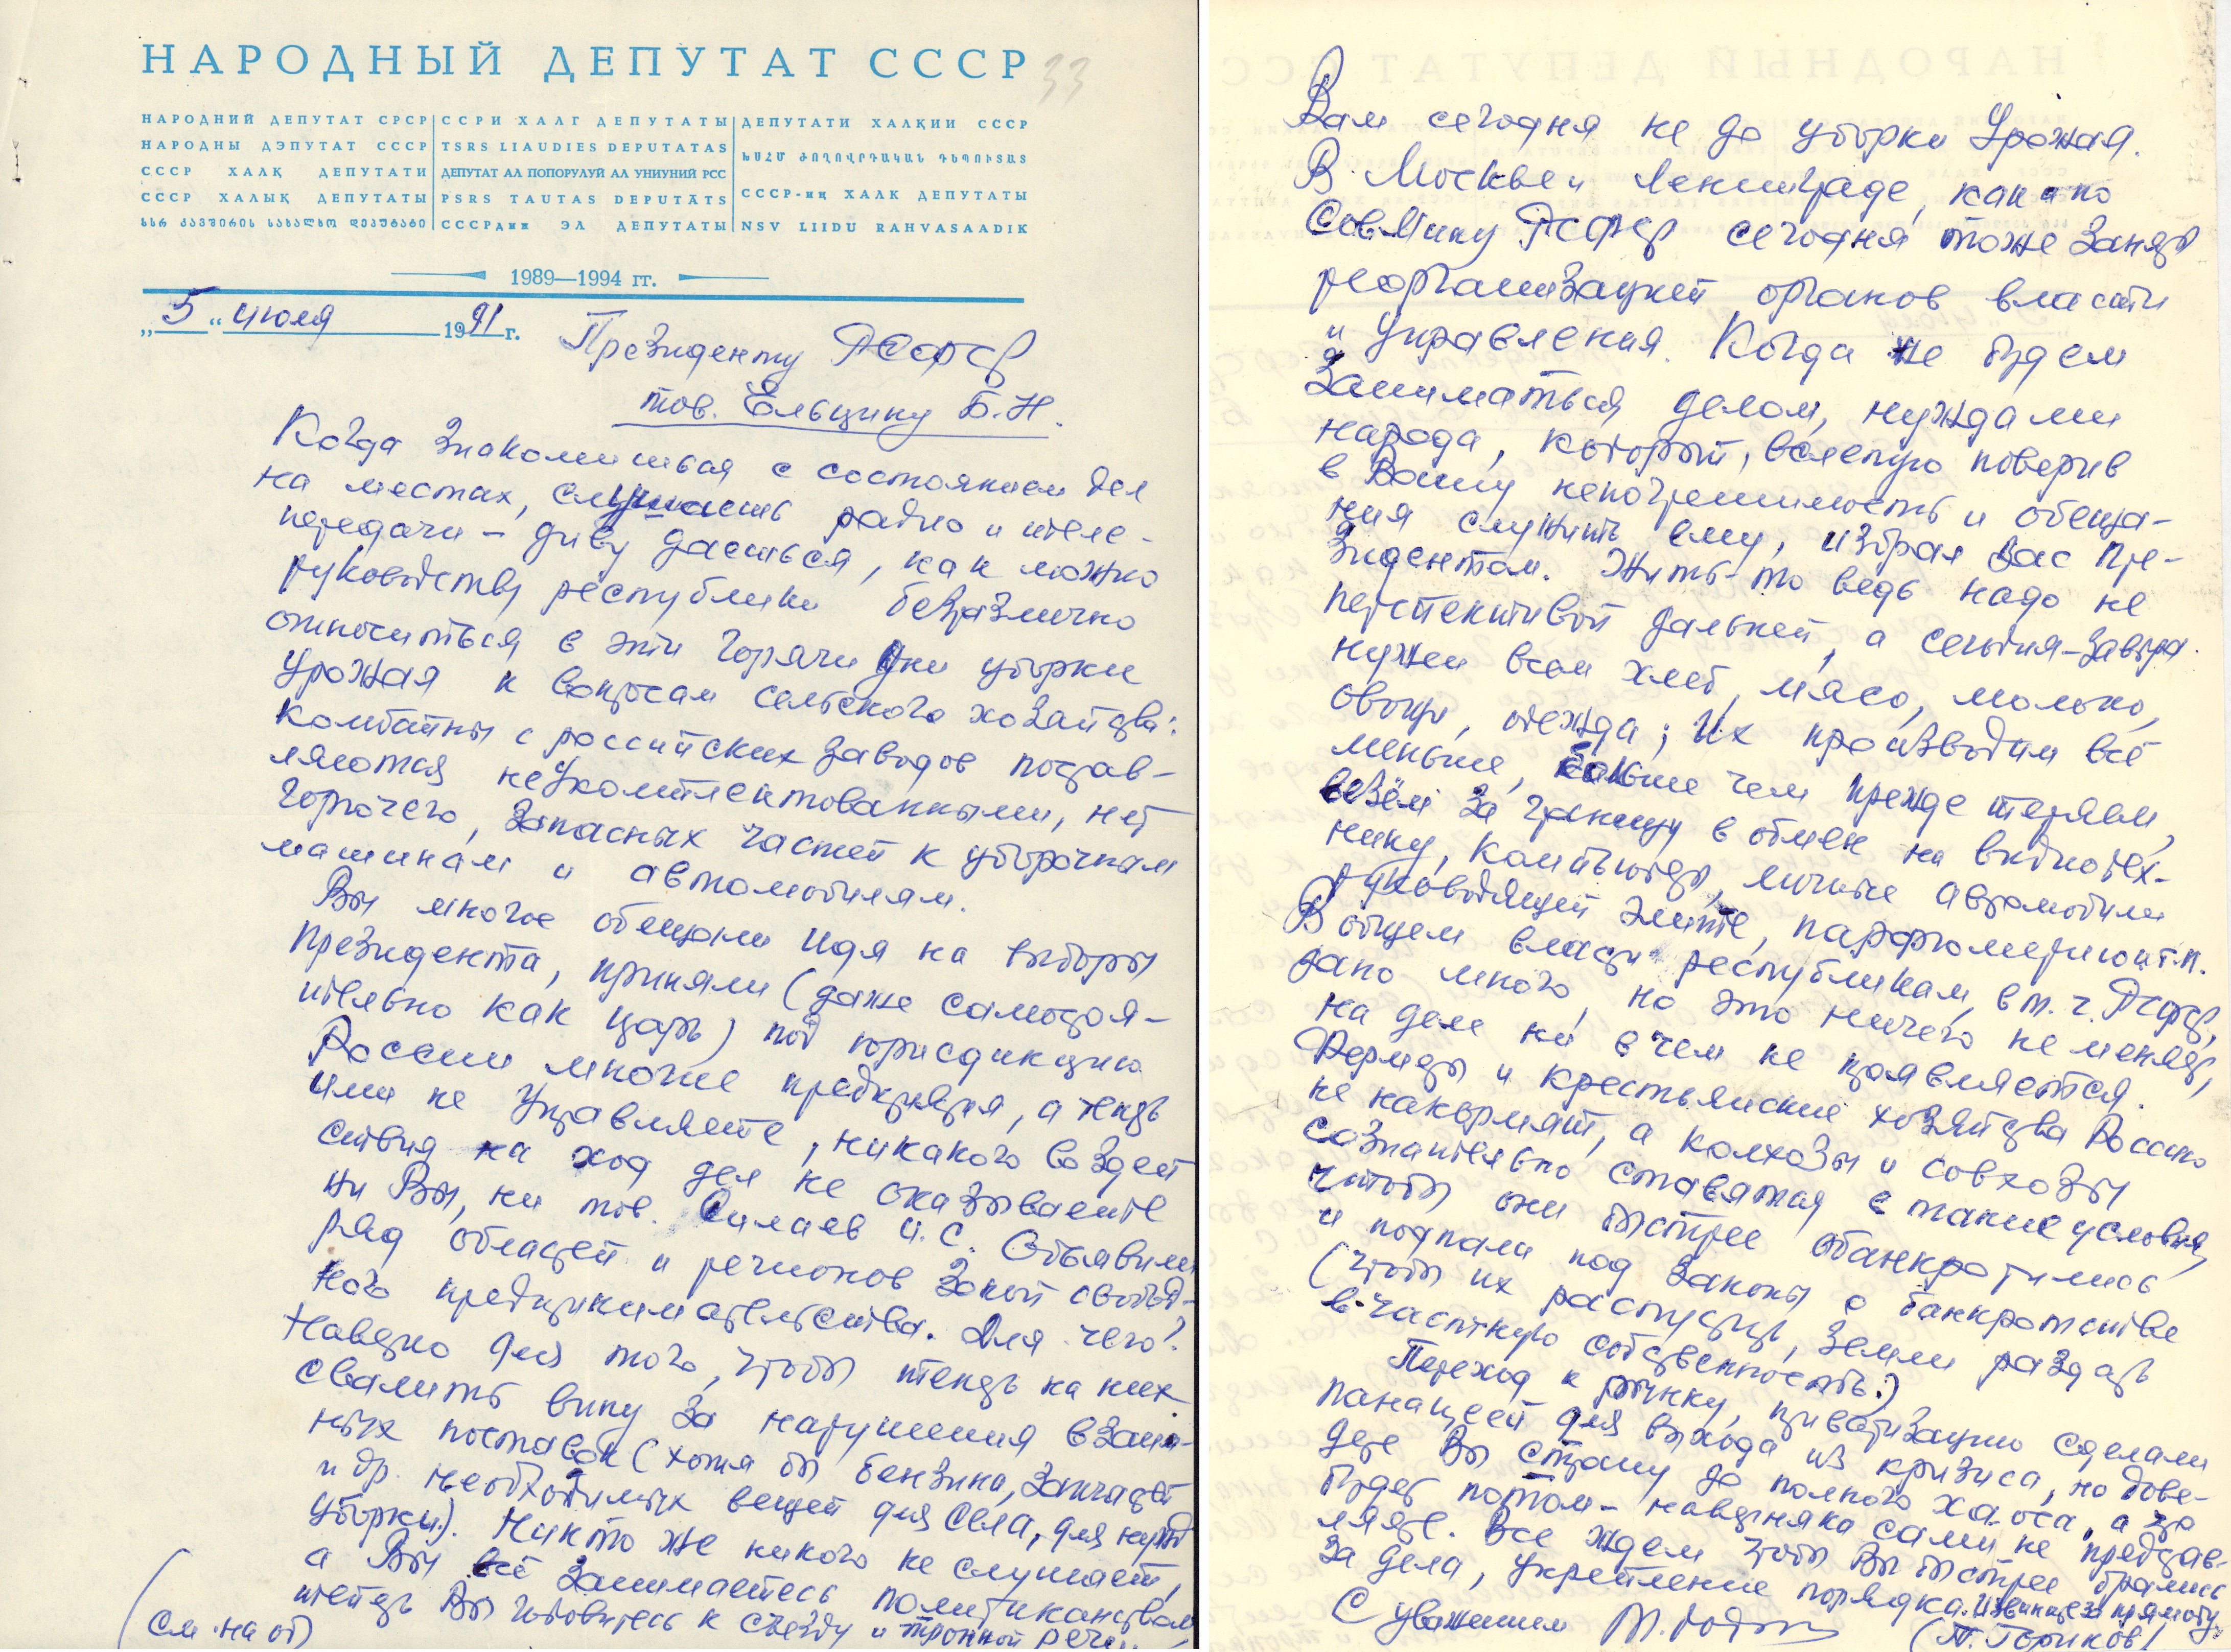 НАРОДНЫЙ ДЕПУТАТ СССР
33
НАРОДНИЙ ДЕПУТАТ СРСР
НАРОДНЫ ДЭПУТАТ СССР
СССР ХАЛҚ ДЕПУТАТИ
СССР ХАЛЫҚ ДЕПУТАТЫ
სსრ კავშირის სახალხო დეპუტატი
ССРИ ХАЛГ ДЕПУТАТЫ
TSRS LIAUDIES DEPUTATAS
ДЕПУТАТ АЛ ПОПОРУЛУЙ АЛ УНИУНИЙ РСС
PSRS TAUTAS DEPUTĀTS
СССРдин ЭЛ ДЕПУТАТЫ
ДЕПУТАТИ ХАЛҚИИ СССР
ԽՍՀՄ ԺՈՂՈՎՐԴԱԿԱՆ ԴԵՊՈՒՏԱՏ
СССР-иң ХАЛК ДЕПУТАТЫ
NSV LIIDU RAHVASAADIK
1989—1994 гг.
„5“ июля 1991 г.
Президенту РСФСР
тов. Ельцину Б.Н.
Когда знакомишься с состоянием дел
на местах, слушаешь радио и теле-
передачи – диву даешься, как можно
руководству республики безразлично
относиться в эти горячи дни уборки
урожая к вопросам сельского хозяйства:
комбайны с российских заводов постав-
ляются неукомплектованными, нет
горючего, запасных частей к уборочным
машинам и автомобилям.
Вы многое обещали идя на выборы
Президента, приняли (даже самостоя-
тельно как царь) под юрисдикцию
России многие предприятия, а теперь
ими не управляете, никакого воздей
ствия на ход дел не оказываете
ни Вы, ни тов. Силаев И.С. Объявили
ряд областей и регионов зоной свобод-
ного предпринимательства. Для чего?
Наверно для того, чтобы теперь на них
свалить вину за нарушения взаим-
ных поставок (хотя бы бензина, запчастей
и др. необходимых вещей для села, для нужд
уборки). Никто же никого не слушает,
а Вы всё занимаетесь политиканством,
теперь Вы готовитесь к съезду и тронной речи,
(см. на об)
Вам сегодня не до уборки урожая.
В Москве и Ленинграде, как и по
СовМину РСФСР сегодня тоже заняты
реорганизацией органов власти
и управления. Когда же будем
заниматься делом, нуждами
народа, который, вслепую поверив
в Вашу непогрешимость и обеща-
ния служить ему, избрал Вас Пре-
зидентом. Жить-то ведь надо не
перспективой дальней, а сегодня-завтра
нужен всем хлеб, мясо, молоко,
овощи, одежда; их производим всё
меньше, больше чем прежде теряем,
везём за границу в обмен на видиотех-
нику, компьютеры, личные автомобили
руководящей элите, парфюмерию и т.п.
В общем власти республикам, в т.ч. РСФСР,
дано много, но это ничего не меняет,
на деле ни в чем не проявляется.
Фермеры и крестьянские хозяйства Россию
не накормят, а колхозы и совхозы
сознательно ставятся в такие условия,
чтобы они быстрее обанкротились
и попали под законы о банкротстве
(чтобы их распустить, земли раздать
в частную собственность.)
Переход к рынку, приватизацию сделали
панацеей для выхода из кризиса, но дове-
дете Вы страну до полного хаоса, а что
будет потом – наверняка сами не представ-
ляете. Все ждем чтобы Вы быстрее брались
за дела, укрепление порядка. Извините за прямоту.
С уважением